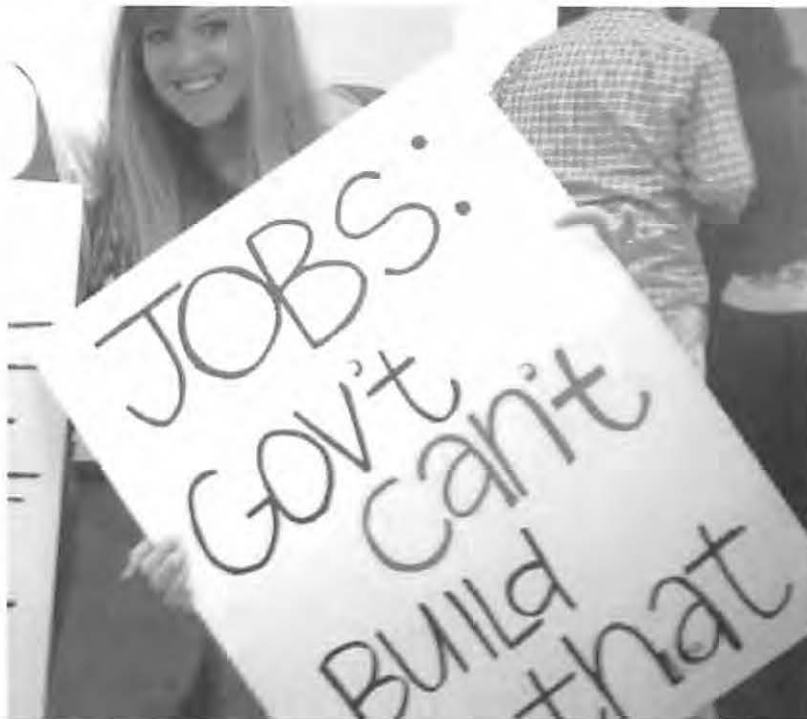 JOBS:
GOV't
can't
BUILd
that